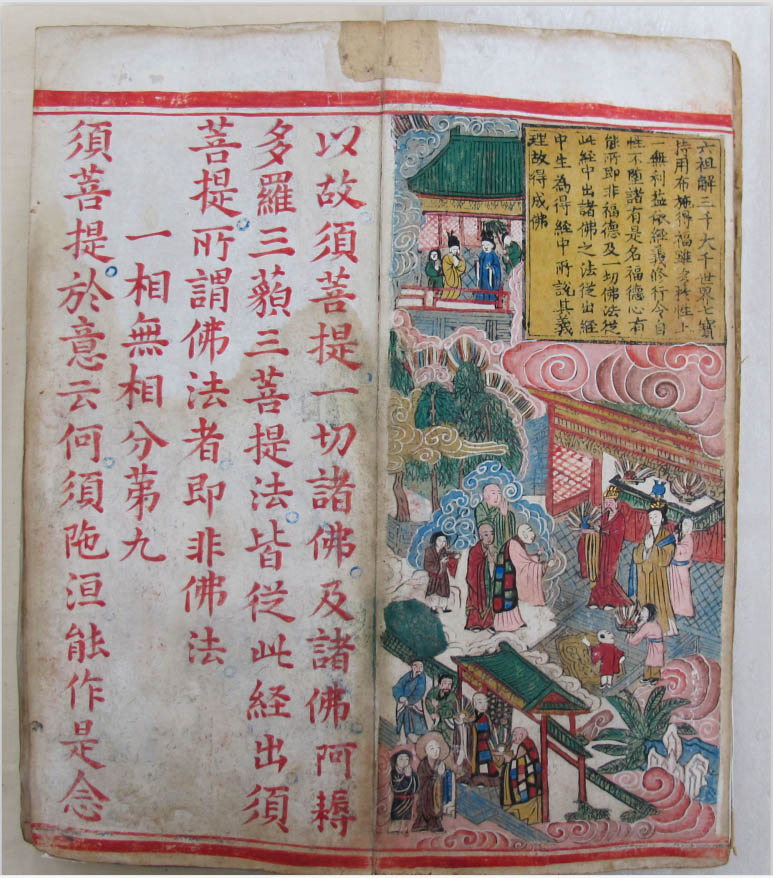 六祖解三千大千世界七寳
持用布施得福雖多於性上
一無利益依経義修行令自
性不墮諸有是名福德心有
能所即非福德及一切佛法從
此経中出諸佛之法從出経
中生為得経中所說其義
理故得成佛
以故須菩提一切諸佛及諸佛阿耨
多羅三藐三菩提法皆従此経出須
菩提所謂佛法者即非佛法
一相無相分第九
須菩提於意云何須陁洹能作是念